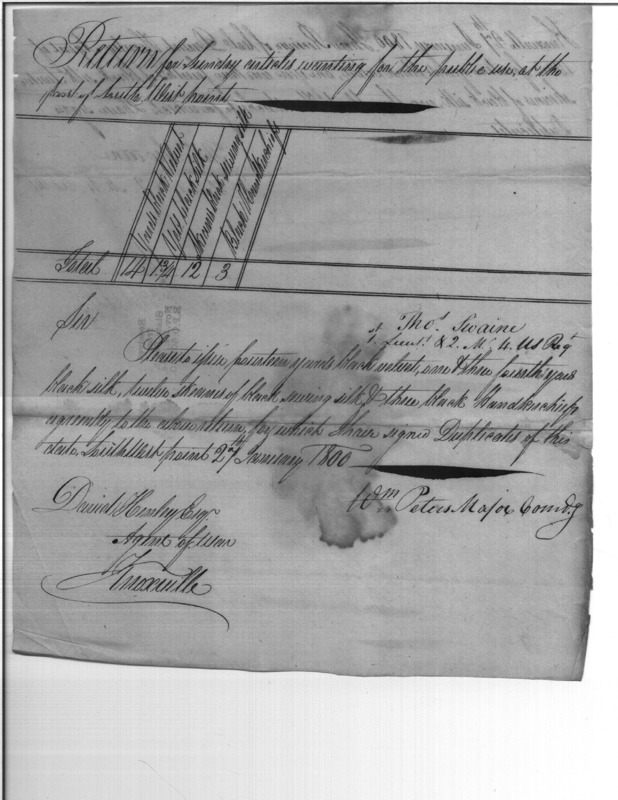 Return for Sunday articles wanting for the public use, at the
post of South West point
Yards Black Velvet
Yds black silk
Skeanes black sewing silk
Black Handkerchiefs
Total 14 1 3/4 12 3
Sir
Thos. Swaine
1. Lieut. & 2. M. 4. US Regt
Please to issue fourteen yards black velvet, one & three fourth yards
black silk, twelve skeanes of black sewing silk, & three black Handkerchiefs
agreeably to the above return, for which I have signed Duplicates of this
date South West point 27th January 1800
Wm Peters Major Comdg
David Henley Esqr.
Agent of War
Knoxville